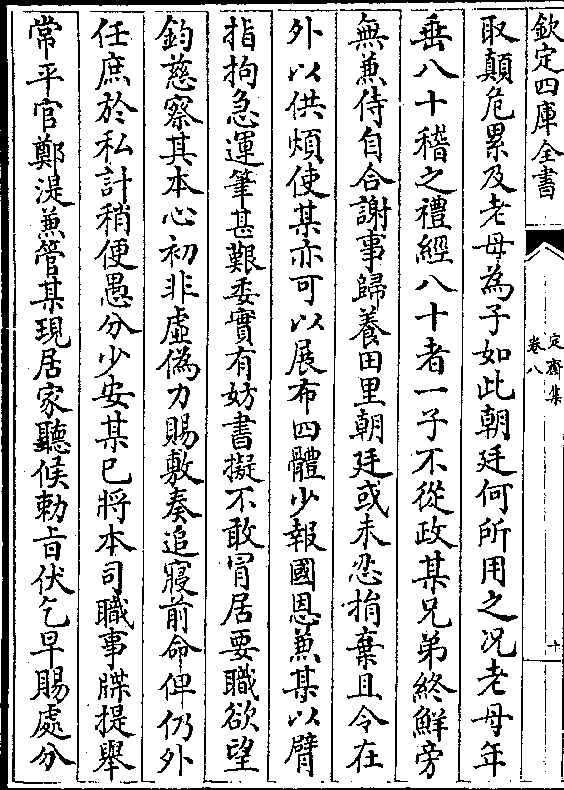 欽定四庫全書
定齋集
卷八
十
取顛危累及老母為子如此朝廷何所用之况老母年
垂八十稽之禮經八十者一子不從政某兄弟終鮮旁
無兼侍自合謝事歸養田里朝廷或未忍捐棄且令在
外以供煩使某亦可以展布四體少報國恩兼某以臂
指拘急運筆甚艱委實有妨書擬不敢冐居要職欲望
鈞慈察其本心初非虛偽力賜敷奏追寢前命俾仍外
任庶於私計稍便愚分少安某已將本司職事牒提舉
常平官鄭湜兼管某現居家聽候勅旨伏乞早賜處分